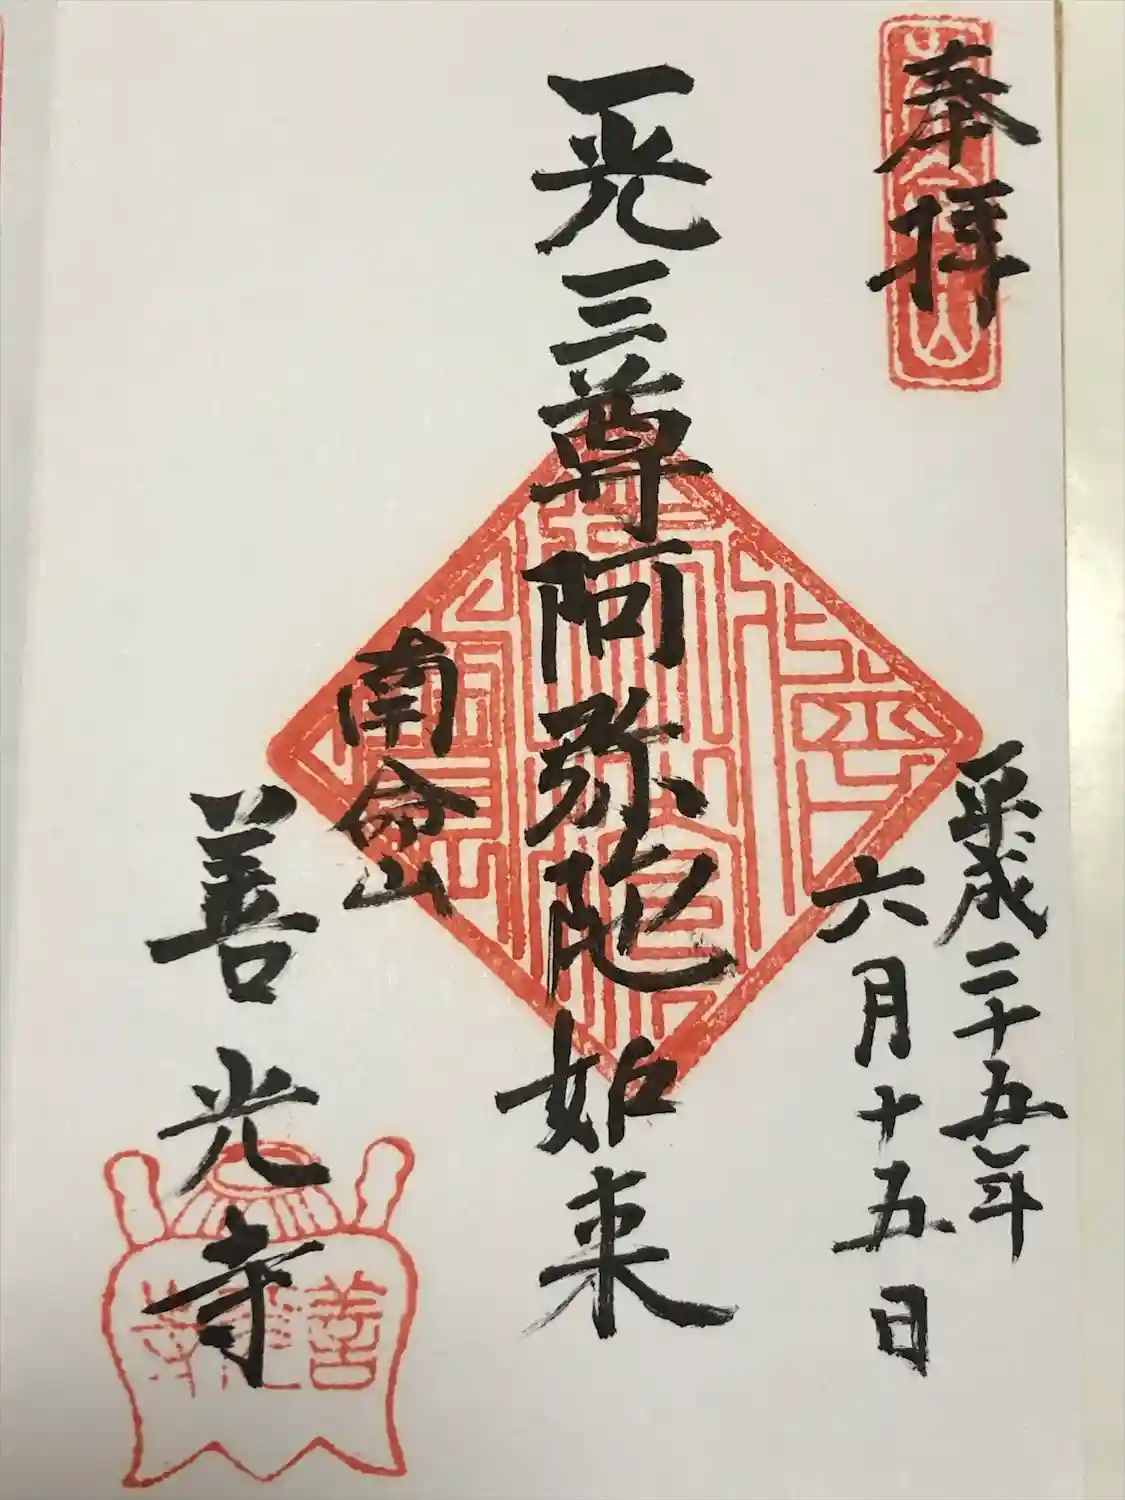 奉拝
平成二十五年
六月十五日
一光三尊阿弥陀如来
南命山
善光寺